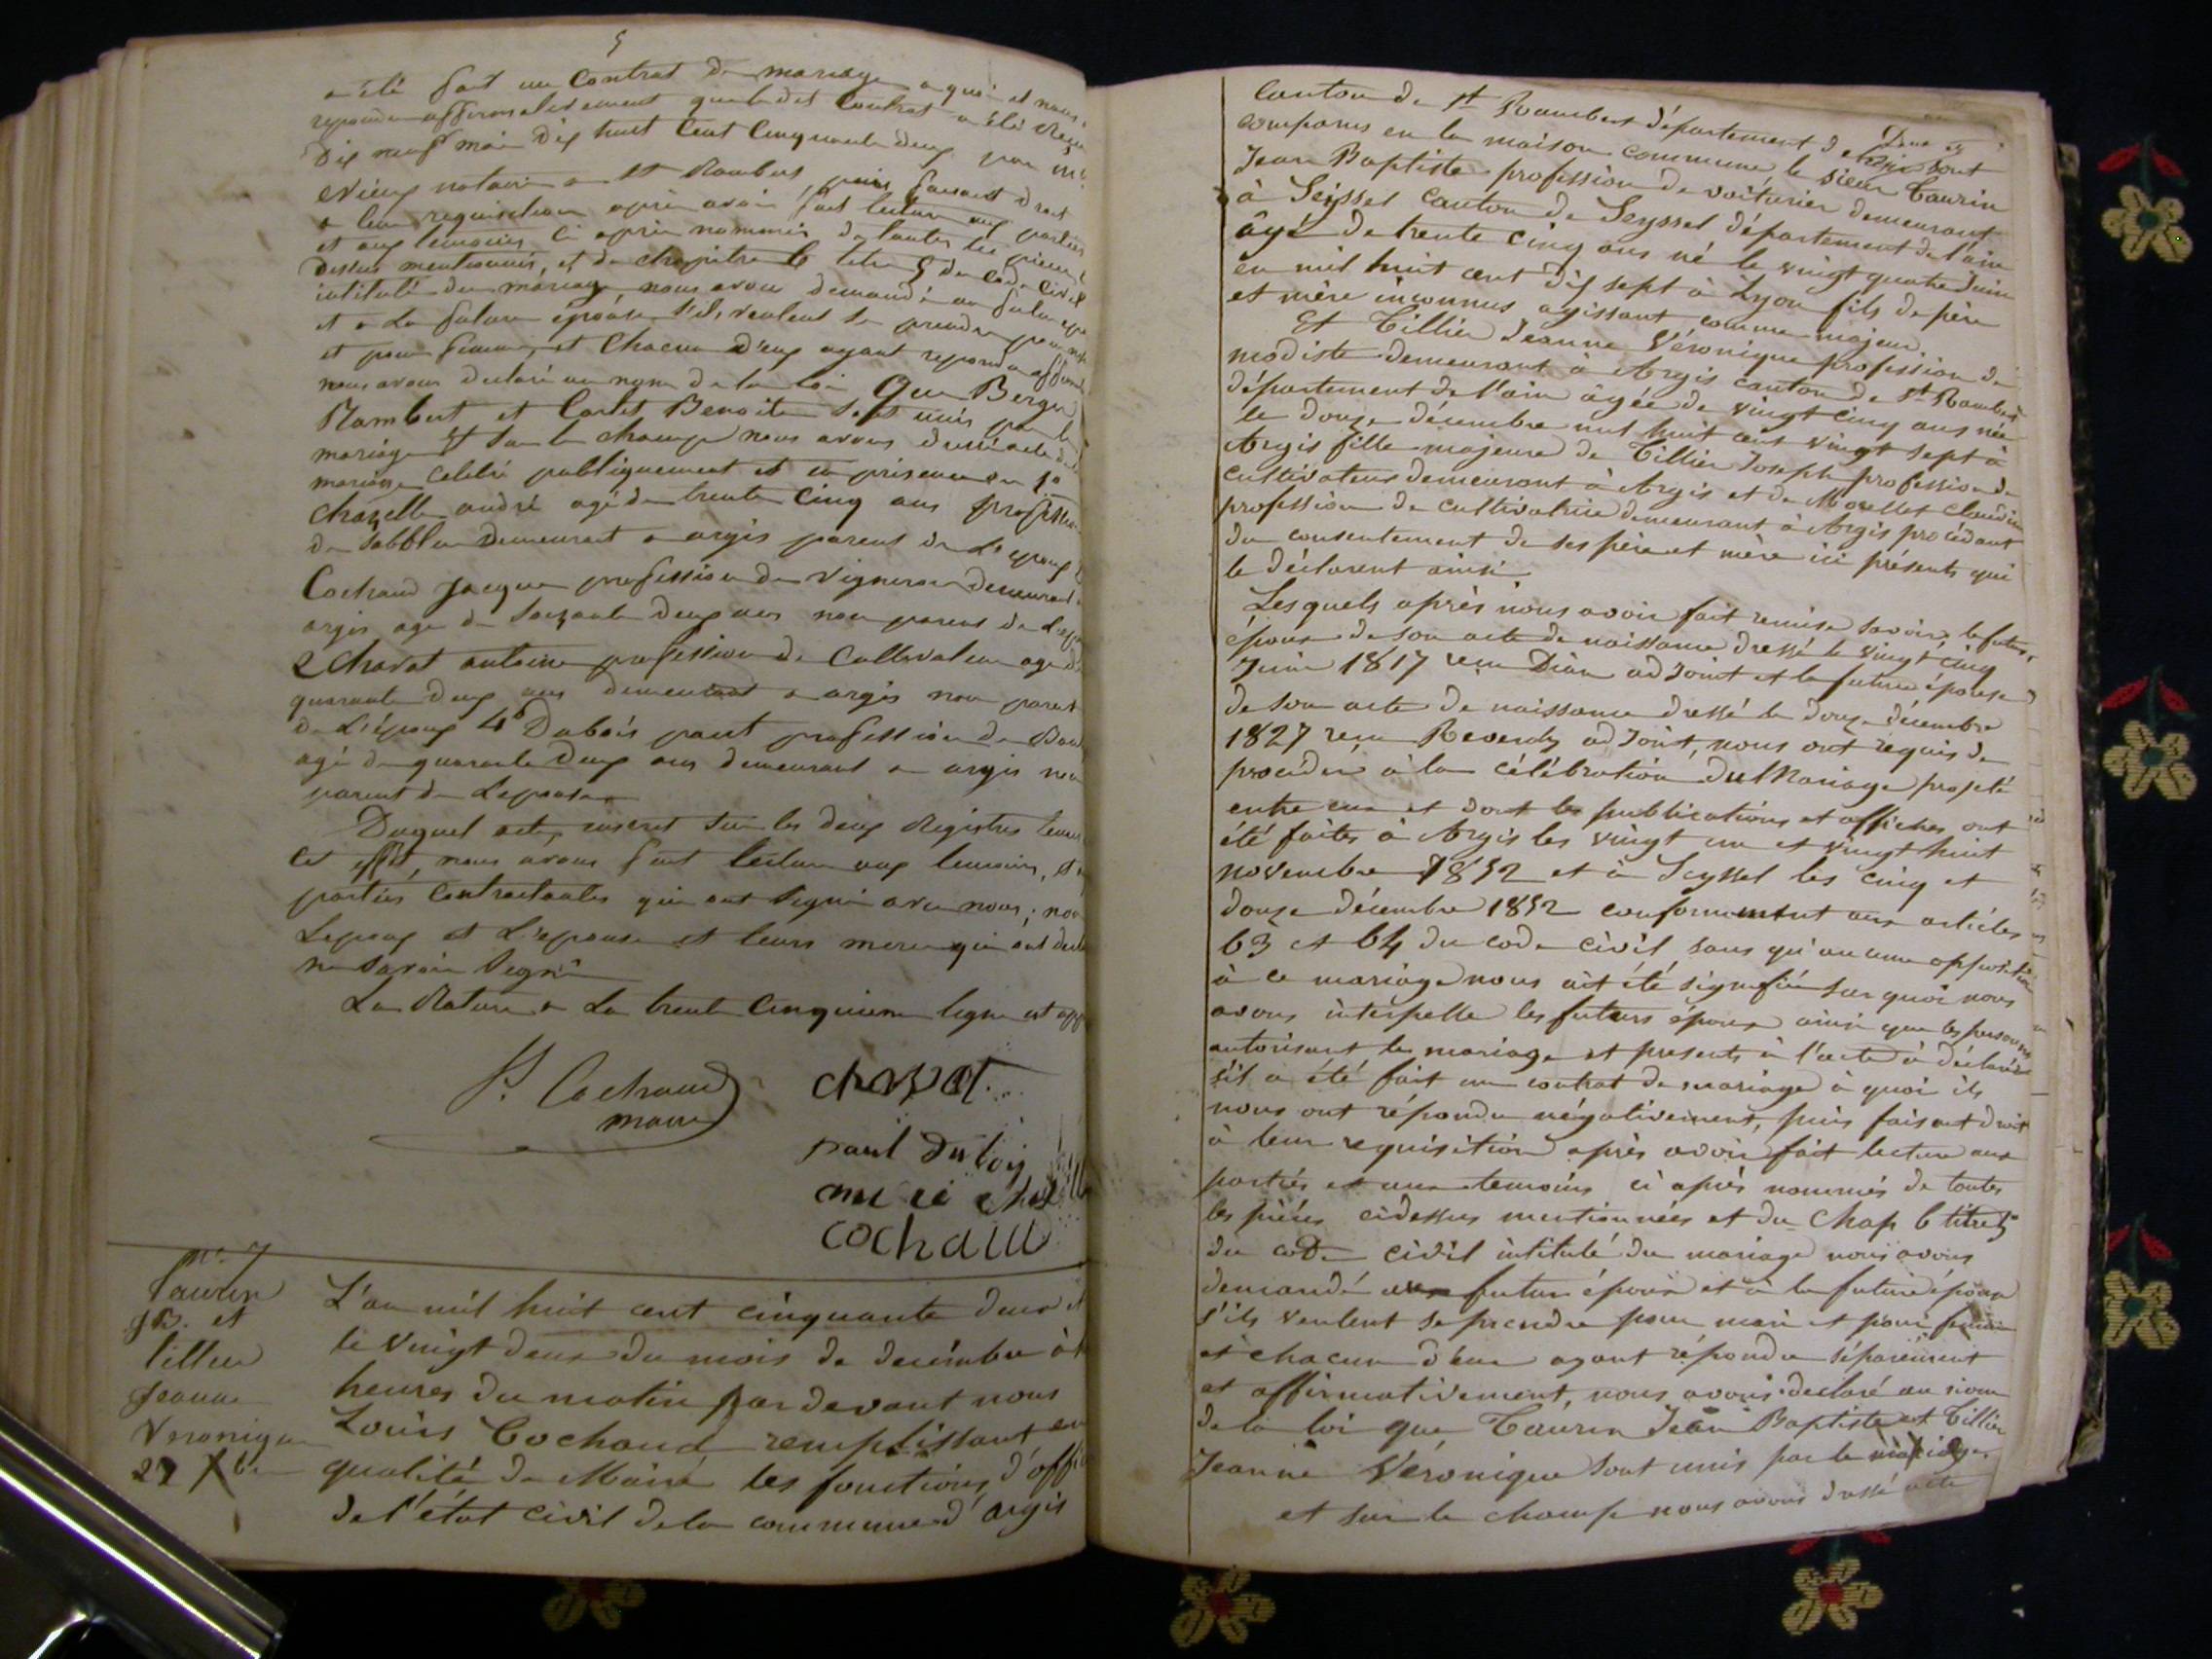 5
a été fait un Contrat de mariage a quoi et nous
repondu affirmativement que ledit Contrat a été reçu
Dix neuf mai Dix huit Cent Cinquante deux par
notaire a St Rambert, puis faisant droit
a leur requisition après avoir fait lecture aux parties
et aux temoins ci après nommés de toutes les pieces
dessus mentionnés, et du chapitre 6 titre 5 du Code Civil
intitulé du mariage nous avons demandé au futur
et a La future épouse s'ils veulent se prendre pour
et pour femme, et Chacun d'eux ayant repondu
nous avons declaré au nom de la loi Que Berger
Rambert et Carlet Benoite sont unis par le
mariage Et sur le champ nous avons dressé acte
mariage Celebré publiquement et en présence de 1°
Chazelle andré agé de trente Cinq ans profession
de Sabblier Demeurant a argis parent de L'epoux
Cochaud Jacque profession de Vigneron demeurant
argis age de Soixante deux ans non parent de
Chavat antoine profession de Cultivateur age de
quarante deux ans demeurant a argis non parent
de L'époux 4° Dubois paul profession de
agé de quarante Deux ans demeurant a argis non
parent de Lepouse
Duquel acte, inscrit sur les deux Registres
Cet effet, nous avons fait lecture aux temoins, et
parties Contractantes qui ont signé avec nous, non
Lepoux et L'epouse et leurs mere qui ont
ne savoir signé
La Rature a La trente Cinquieme ligne est
Cochaud chavat
maire
paul duboy
cochaud
n° 7
Taurin
JB. et
tillier
Jeanne
Veronique
22 Xbre
L'an mil huit cent cinquante deux et
le vingt deux du mois de décembre à
heures du matin par devant nous
Louis Cochaud remplissant en
qualité de Maire les fonctions
de l'état civil de la commune d'argis
Canton de St Rambert département de l'ain sont
comparus en la maison commune le sieur Taurin
Jean Baptiste profession de voiturier demeurant
à Seissel canton de Seyssel département de l'ain
âgé de trente cinq ans né le vingt quatre Juin
en mil huit cent dix sept à Lyon fils de père
et mère inconnus agissant comme majeur
Et Tillier Jeanne Véronique profession de
modiste demeurant à Argis canton de St Rambert
département de l'ain âgée de vingt cinq ans née
le douze décembre mil huit cent vingt sept à
Argis fille majeure de Tillier Joseph profession de
cultivateur demeurant à Argis et de Morellet Claudine
profession de cultivatrice demeurant à Argis procédant
du consentement de ses père et mère ici présents qui
le déclarent ainsi
Lesquels après nous avoir fait remise savoir, le futur
époux de son acte de naissance dressé le vingt cinq
Juin 1817 reçu adjoint et la future épouse
de son acte de naissance dressé le douze décembre
1827 reçu Reverdy adjoint, nous ont requis de
procéder à la célébration du Mariage projeté
entre eux et dont les publications et affiches ont
été faites à Argis les vingt un et vingt huit
novembre 1852 et à Seyssel les cinq et
douze décembre 1852 conformément aux articles
63 et 64 du code civil, sans qu'aucune opposition
à ce mariage nous ait été signifiée sur quoi nous
avons interpelle les futurs époux ainsi que les personnes
autorisant le mariage et presents à l'acte à déclarer
s'il a été fait un contrat de mariage à quoi ils
nous ont répondu négativement, puis faisant droit
à leur requisition après avoir fait lecture aux
parties et aux temoins ci après nommés de toutes
les pièces cidessus mentionnées et du Chap 6 titre 5°
du code civil intitulé du mariage nous avons
demandé au futur époux et à la future épouse
s'ils veulent se prendre pour mari et pour femme
et chacun d'eux ayant répondu séparément
et affirmativement, nous avons declaré au nom
de la loi que Taurin Jean Baptiste et Tillier
Jeanne Véronique sont unis par le mariage.
et sur le champ nous avons dressé acte